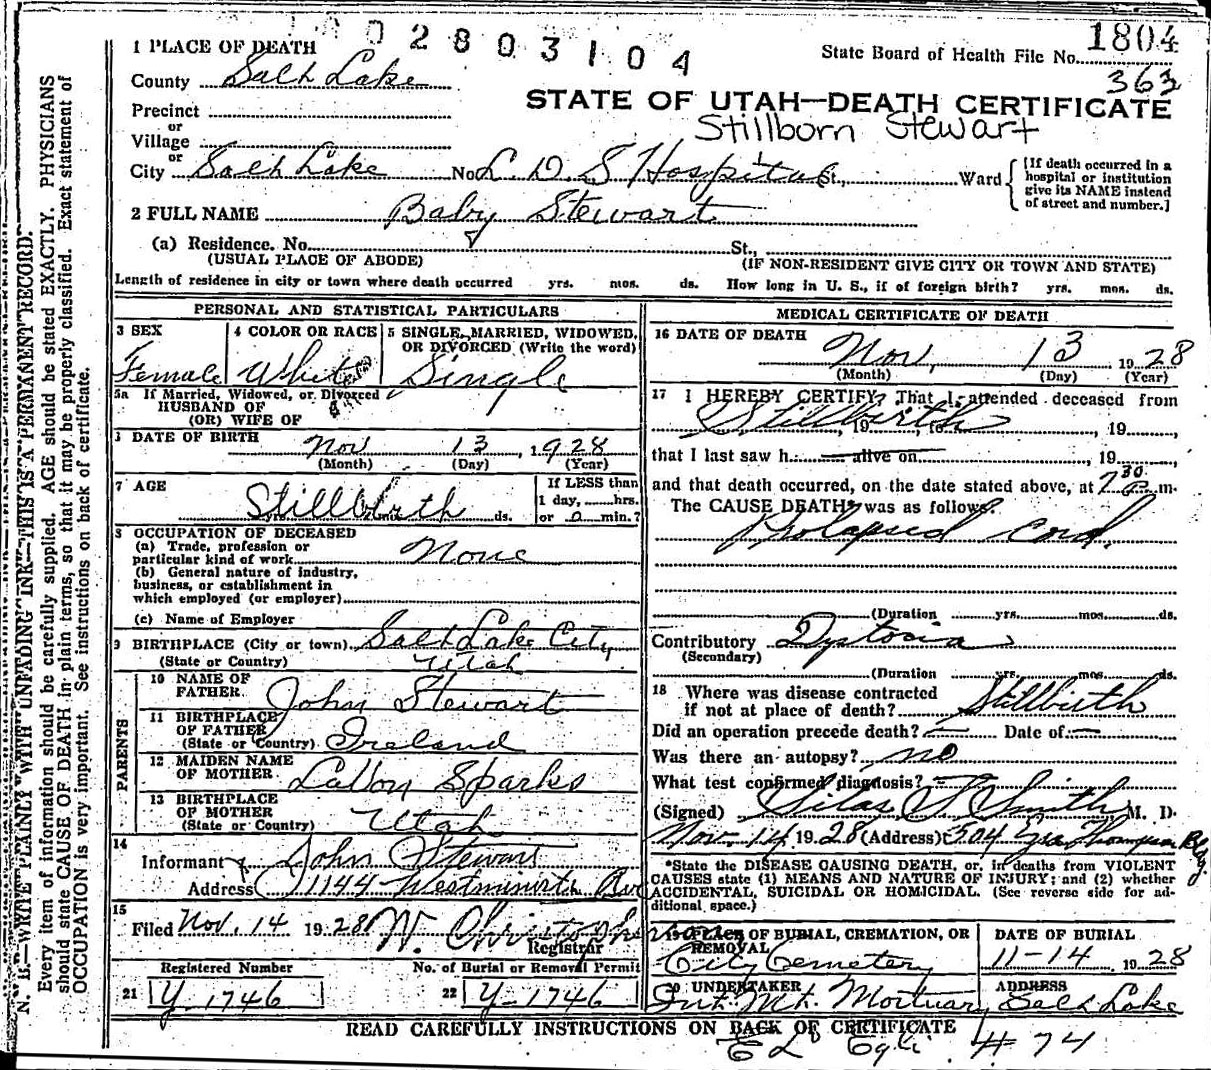 1002803104
State Board of Health File No. 1804
363
1 PLACE OF DEATH
County Salt Lake
STATE OF UTAH—DEATH CERTIFICATE
Stillborn Stewart
Precinct
or
Village
or
City Salt Lake No. L. D. S Hospital St., Ward
[If death occurred in a
hospital or institution
give its NAME instead
of street and number.]
2 FULL NAME Baby Stewart
(a) Residence. No. St.,
(USUAL PLACE OF ABODE) (IF NON-RESIDENT GIVE CITY OR TOWN AND STATE)
Length of residence in city or town where death occurred yrs. mos. ds. How long in U. S., if of foreign birth? yrs. mos. ds.
PERSONAL AND STATISTICAL PARTICULARS
3 SEX
Female
4 COLOR OR RACE
White
5 SINGLE, MARRIED, WIDOWED,
OR DIVORCED (Write the word)
Single
5a If Married, Widowed, or Divorced
HUSBAND OF
(OR) WIFE OF
DATE OF BIRTH
Nov 13, 1928
(Month) (Day) (Year)
7 AGE
Stillbirth
yrs. mos. ds.
If LESS than
1 day, hrs.
or 0 min.?
8 OCCUPATION OF DECEASED
(a) Trade, profession or
particular kind of work None
(b) General nature of industry,
business, or establishment in
which employed (or employer)
(c) Name of Employer
9 BIRTHPLACE (City or town) Salt Lake City
(State or Country) Utah
PARENTS
10 NAME OF
FATHER John Stewart
11 BIRTHPLACE
OF FATHER
(State or Country) Ireland
12 MAIDEN NAME
OF MOTHER Sparks
13 BIRTHPLACE
OF MOTHER
(State or Country) Utah
14
Informant John Stewart
Address 1144 Westminister
15
Filed Nov. 14 1928 W. Christopherson
Registrar
Registered Number
21 Y-1746
No. of Burial or Removal Permit
22 Y-1746
MEDICAL CERTIFICATE OF DEATH
16 DATE OF DEATH
Nov, 13 1928
(Month) (Day) (Year)
17 I HEREBY CERTIFY, That I attended deceased from
Stillbirth, 19, to, 19,
that I last saw h alive on, 19,
and that death occurred, on the date stated above, at 7 30 P m.
The CAUSE DEATH* was as follows:
Prolapsed Cord.
(Duration yrs. mos. ds.
Contributory Dystocia
(Secondary)
(Duration yrs. mos. ds.
18 Where was disease contracted
if not at place of death? Stillbirth
Did an operation precede death? — Date of —
Was there an autopsy? no
What test confirmed diagnosis? =
(Signed) Silas S. Smith, M. D.
Nov. 14, 1928 (Address) 504 Bldg.
*State the DISEASE CAUSING DEATH, or, in deaths from VIOLENT
CAUSES state (1) MEANS AND NATURE OF INJURY; and (2) whether
ACCIDENTAL, SUICIDAL OR HOMICIDAL. (See reverse side for ad-
ditional space.)
19 PLACE OF BURIAL, CREMATION, OR
REMOVAL
City Cemetery
DATE OF BURIAL
11-14 1928
20 UNDERTAKER
Int. Mt. Mortuary
ADDRESS
Salt Lake
READ CAREFULLY INSTRUCTIONS ON BACK OF CERTIFICATE
E L Egli # 74
N. B.—WRITE PLAINLY WITH UNFADING INK—THIS IS A PERMANENT RECORD.
Every item of information should be carefully supplied. AGE should be stated EXACTLY. PHYSICIANS
should state CAUSE OF DEATH in plain terms, so that it may be properly classified. Exact statement of
OCCUPATION is very important. See instructions on back of certificate.